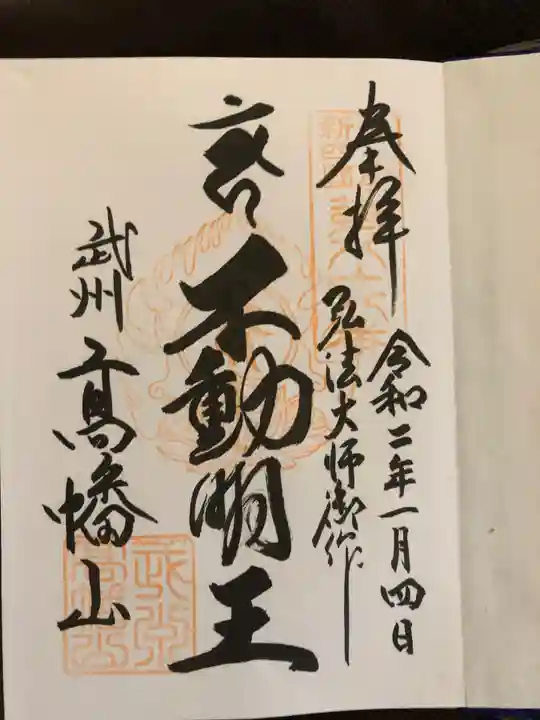 奉拝
令和二年一月四日
弘法大師御作
不動明王
武州
髙幡山